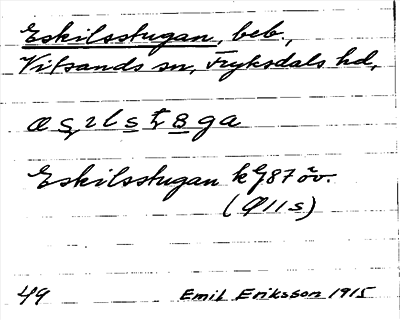 Eskilsstugan, beb.,
Vitsands sn, Fryksdals hd,
Eskilsstugan kG87 öv.
(Q11s)
49 Emil Eriksson 1915